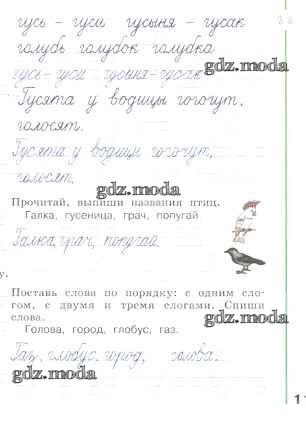 гусь – гуси гусыня – гусак
голубь голубок голубка
гусь-гуси гусыня-гусак
gdz.moda
Гусята у водицы гогочут,
голосят.
Гусята у водицы гогочут,
голосят.
gdz.moda
Прочитай, выпиши названия птиц.
Галка, гусеница, грач, попугай
Галка, грач, попугай.
gdz.moda
у.
Поставь слова по порядку: с одним сло-
гом, с двумя и тремя слогами. Спиши
слова.
Голова, город, глобус, газ.
gdz.moda
Газ, глобус, город, голова.
gdz.moda
1